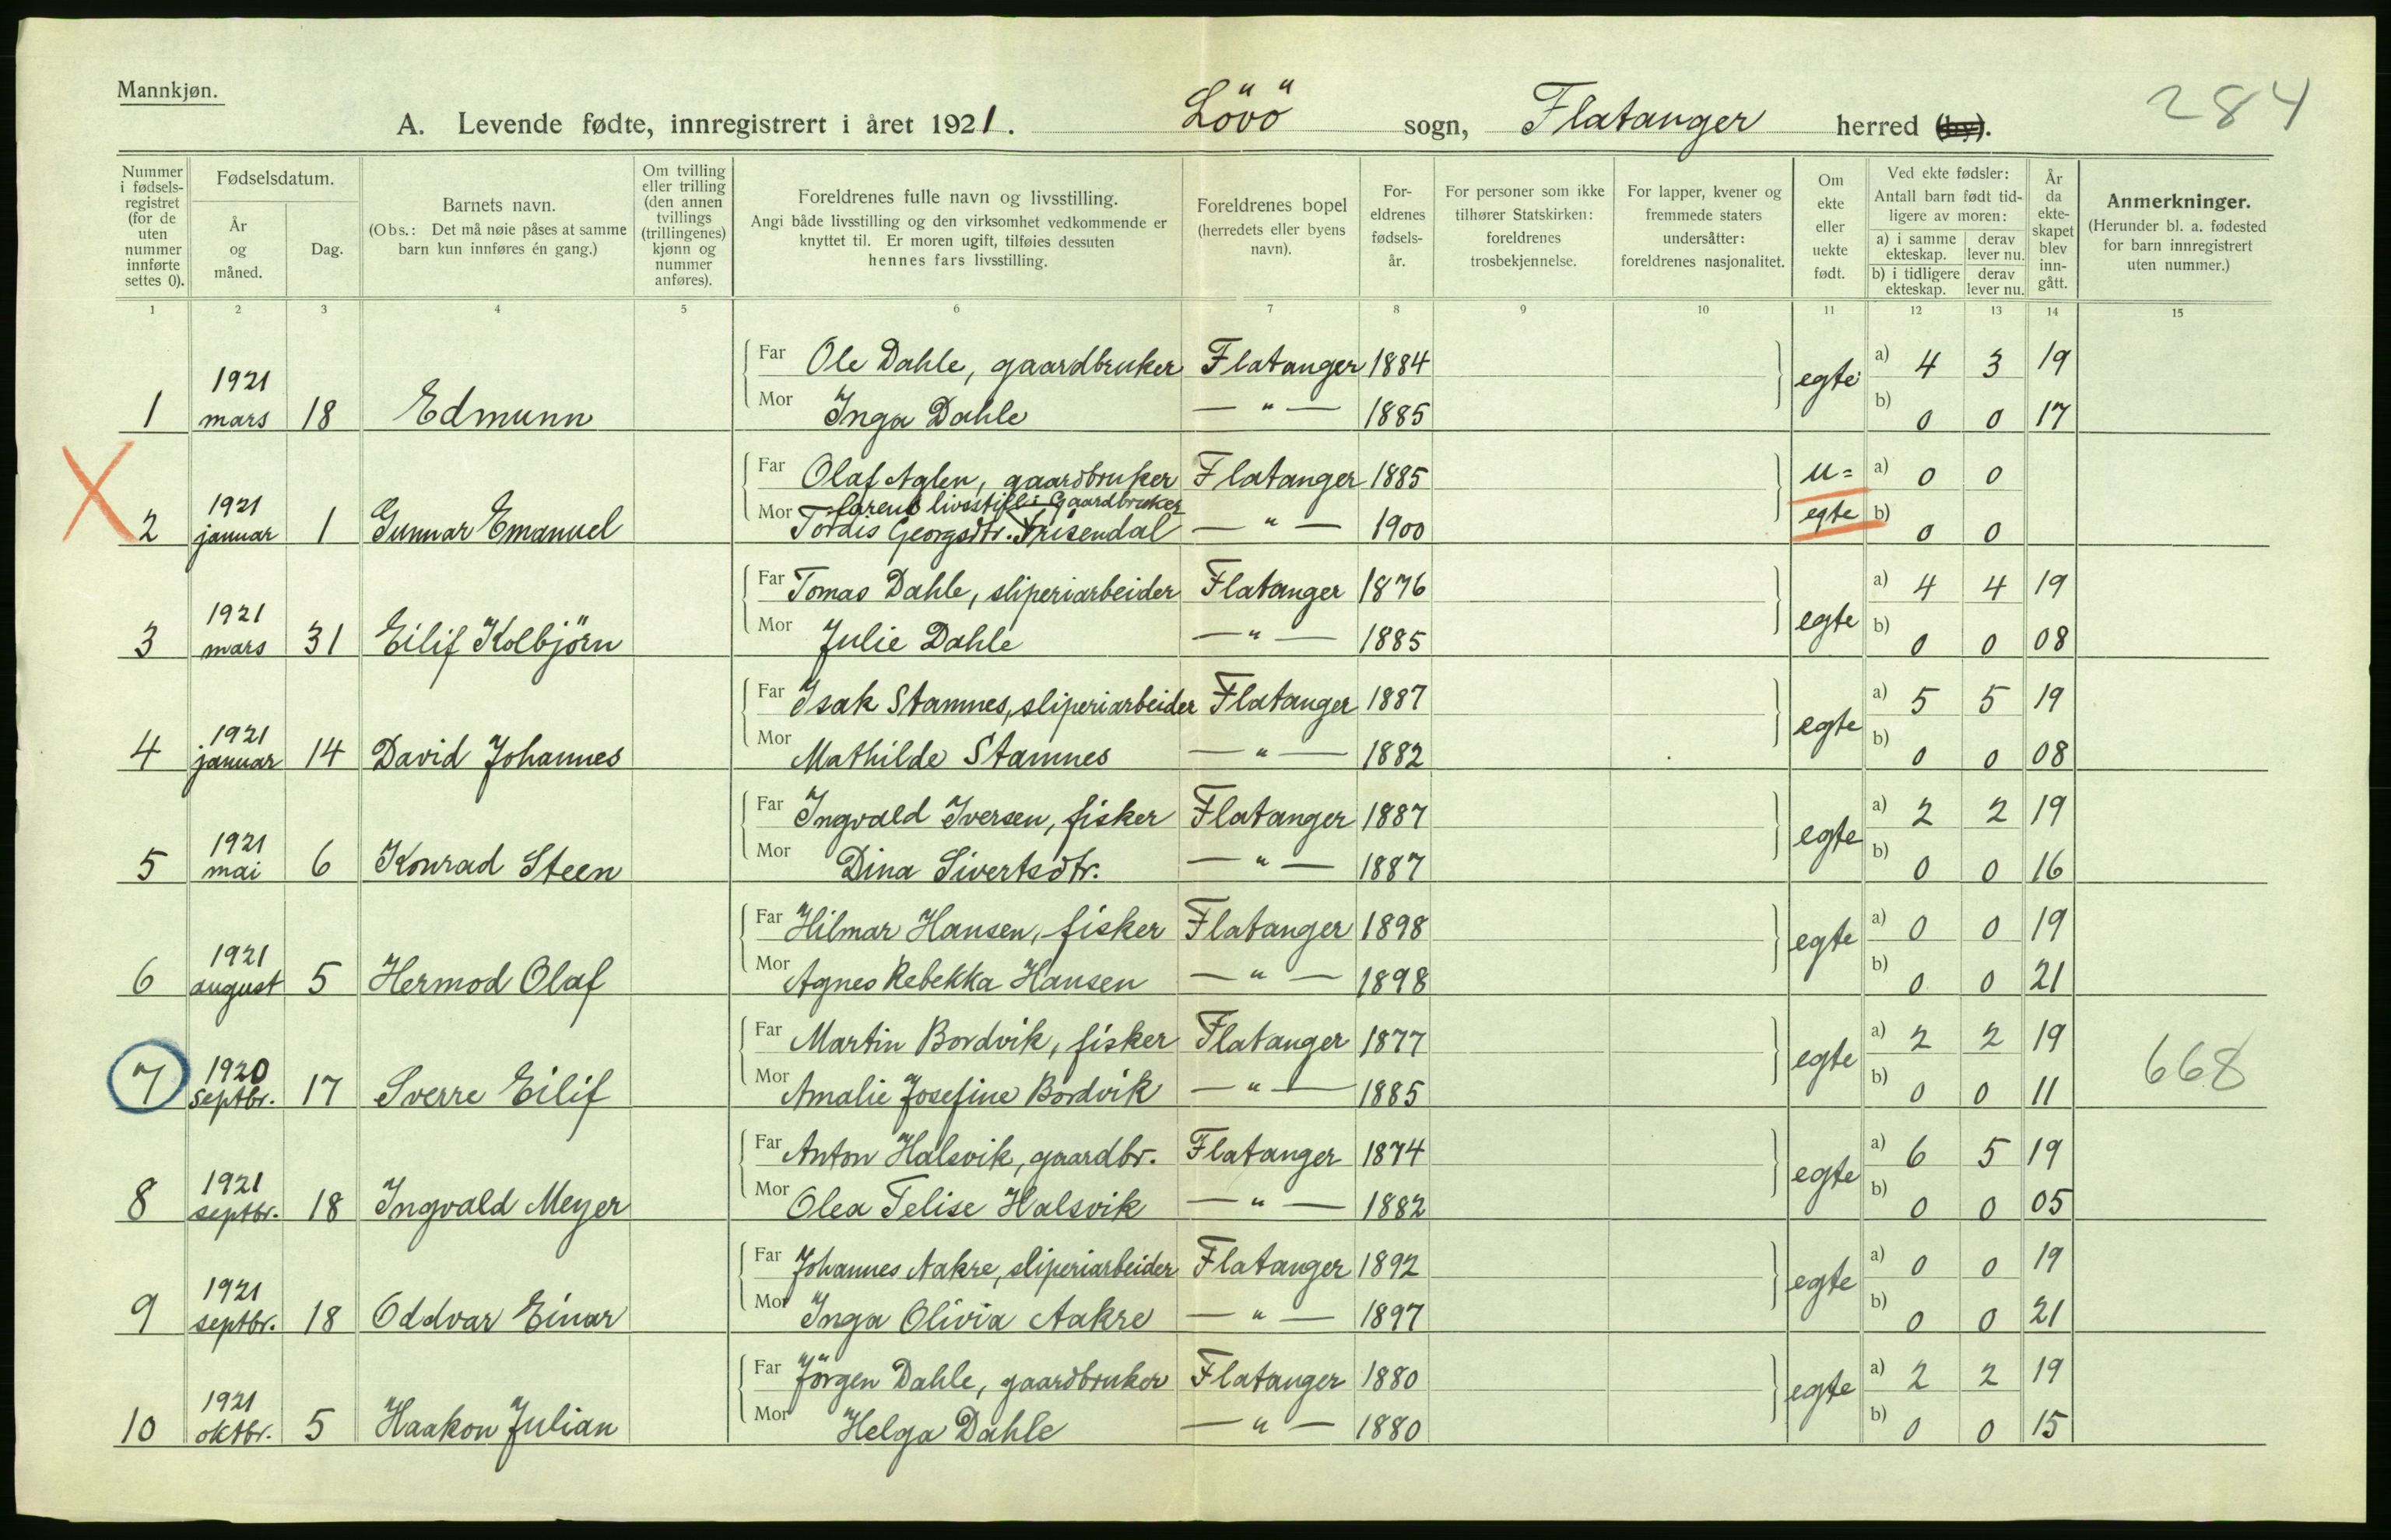 Mannkjøn.
284
A. Levende fødte, innregistrert i året 1921. Lövö sogn, Flatanger herred (by).
Nummer i fødsels-registret (for de uten nummer innførte settes 0).
Fødselsdatum.
År og måned.
Dag.
Barnets navn.
(Obs.: Det må nøie påses at samme barn kun innføres én gang.)
Om tvilling eller trilling (den annen tvillings (trillingenes) kjønn og nummer anføres).
Foreldrenes fulle navn og livsstilling.
Angi både livsstilling og den virksomhet vedkommende er knyttet til. Er moren ugift, tilføies dessuten hennes fars livsstilling.
Foreldrenes bopel (herredets eller byens navn).
For-eldrenes fødsels-år.
For personer som ikke tilhører Statskirken: foreldrenes trosbekjennelse.
For lapper, kvener og fremmede staters undersåtter: foreldrenes nasjonalitet.
Om ekte eller uekte født.
Ved ekte fødsler:
Antall barn født tid-ligere av moren:
a) i samme ekteskap.
derav lever nu.
b) i tidligere ekteskap.
derav lever nu.
År da ekte-skapet blev inn-gått.
Anmerkninger.
(Herunder bl. a. fødested for barn innregistrert uten nummer.)
1 2 3 4 5 6 7 8 9 10 11 12 13 14 15
Far Ole Dahle, gaardbruker Flatanger 1884 egte a) 4 3 19
1 1921 mars 18 Edmunn Mor Inga Dahle — " — 1885 b) 0 0 17
Far Olaf Aglen, gaardbruker Flatanger 1885 u= a) 0 0
farens livsstill: Gaardbruker
2 1921 januar 1 Gunnar Emanuel Mor Tordis Georgsdtr. Frisendal — " — 1900 egte b) 0 0
Far Tomas Dahle, sliperiarbeider Flatanger 1876 egte a) 4 4 19
3 1921 mars 31 Eilif Kolbjörn Mor Julie Dahle — " — 1885 b) 0 0 08
Far Isak Stamnes, sliperiarbeider Flatanger 1887 egte a) 5 5 19
4 1921 januar 14 David Johannes Mor Mathilde Stamnes — " — 1882 b) 0 0 08
Far Ingvald Iversen, fisker Flatanger 1887 egte a) 2 2 19
5 1921 mai 6 Konrad Steen Mor Dina Sivertsdtr. — " — 1887 b) 0 0 16
Far Hilmar Hansen, fisker Flatanger 1898 egte a) 0 0 19
6 1921 august 5 Hermod Olaf Mor Agnes Rebekka Hansen — " — 1898 b) 0 0 21
Far Martin Bordvik, fisker Flatanger 1877 egte a) 2 2 19
7 1920 septbr. 17 Sverre Eilif Mor Amalie Josefine Bordvik — " — 1885 b) 0 0 11 668
Far Anton Halsvik, gaardbr. Flatanger 1874 egte a) 6 5 19
8 1921 septbr. 18 Ingvald Meyer Mor Olea Felise Halsvik — " — 1882 b) 0 0 05
Far Johannes Aakre, sliperiarbeider Flatanger 1892 egte a) 0 0 19
9 1921 septbr. 18 Oddvar Einar Mor Inga Olivia Aakre — " — 1897 b) 0 0 21
Far Jörgen Dahle, gaardbruker Flatanger 1880 egte a) 2 2 19
10 1921 oktbr. 5 Haakon Julian Mor Helga Dahle — " — 1880 b) 0 0 15